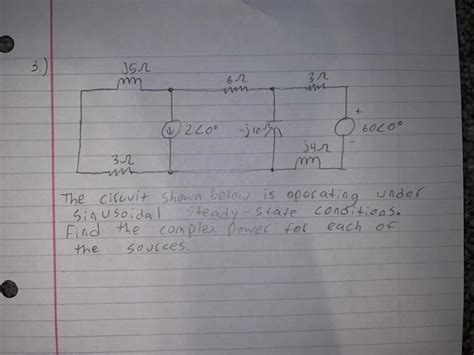 3.)
j5Ω
6Ω
3Ω
2∠0°
-j10Ω
+
60∠0°
-
3Ω
j4Ω
The circuit shown below is operating under
sinusoidal steady-state conditions.
Find the complex power for each of
the sources.